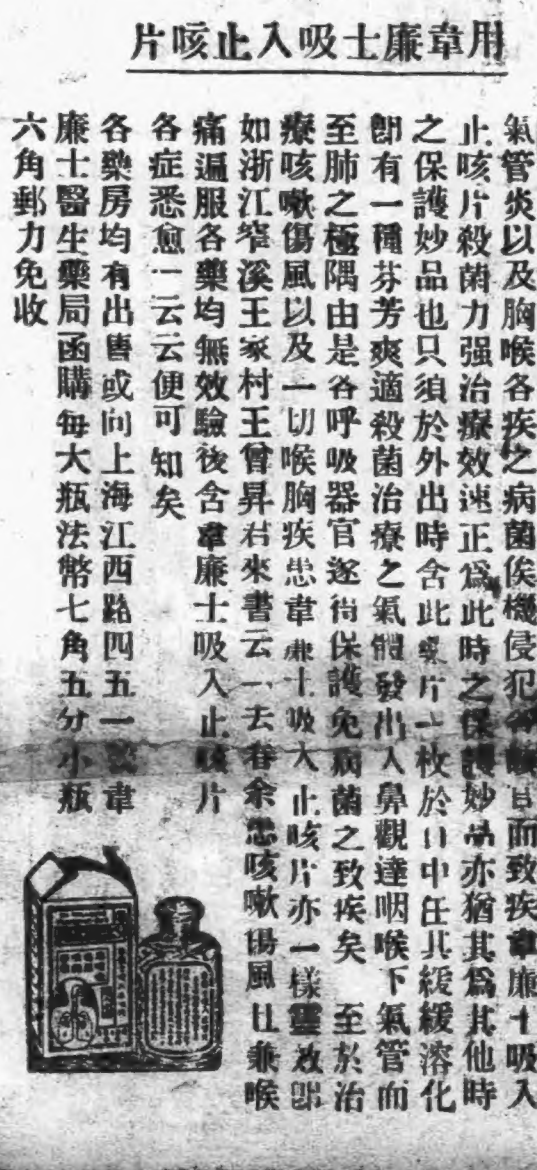 用韋廉士吸入止咳片
氣管炎以及胸喉各疾之病菌俟機侵犯而致疾韋廉士吸入
止咳片殺菌力强治療效速正爲此時之保護妙品亦猶其爲其他時
之保護妙品也只須於外出時含此藥片一枚於口中任其緩緩溶化
卽有一種芬芳爽適殺菌治療之氣體發出入鼻觀達咽喉下氣管而
至肺之極隅由是各呼吸器官遂得保護免病菌之致疾矣 至於治
療咳嗽傷風以及一切喉胸疾患韋廉士吸入止咳片亦一樣靈效卽
如浙江窄溪王家村王曾昇君來書云「去春余患咳嗽傷風且兼喉
痛遍服各藥均無效驗後含韋廉士吸入止咳片
各症悉愈」云云便可知矣
各藥房均有出售或向上海江西路四五一號韋
廉士醫生藥局函購每大瓶法幣七角五分小瓶
六角郵力免收